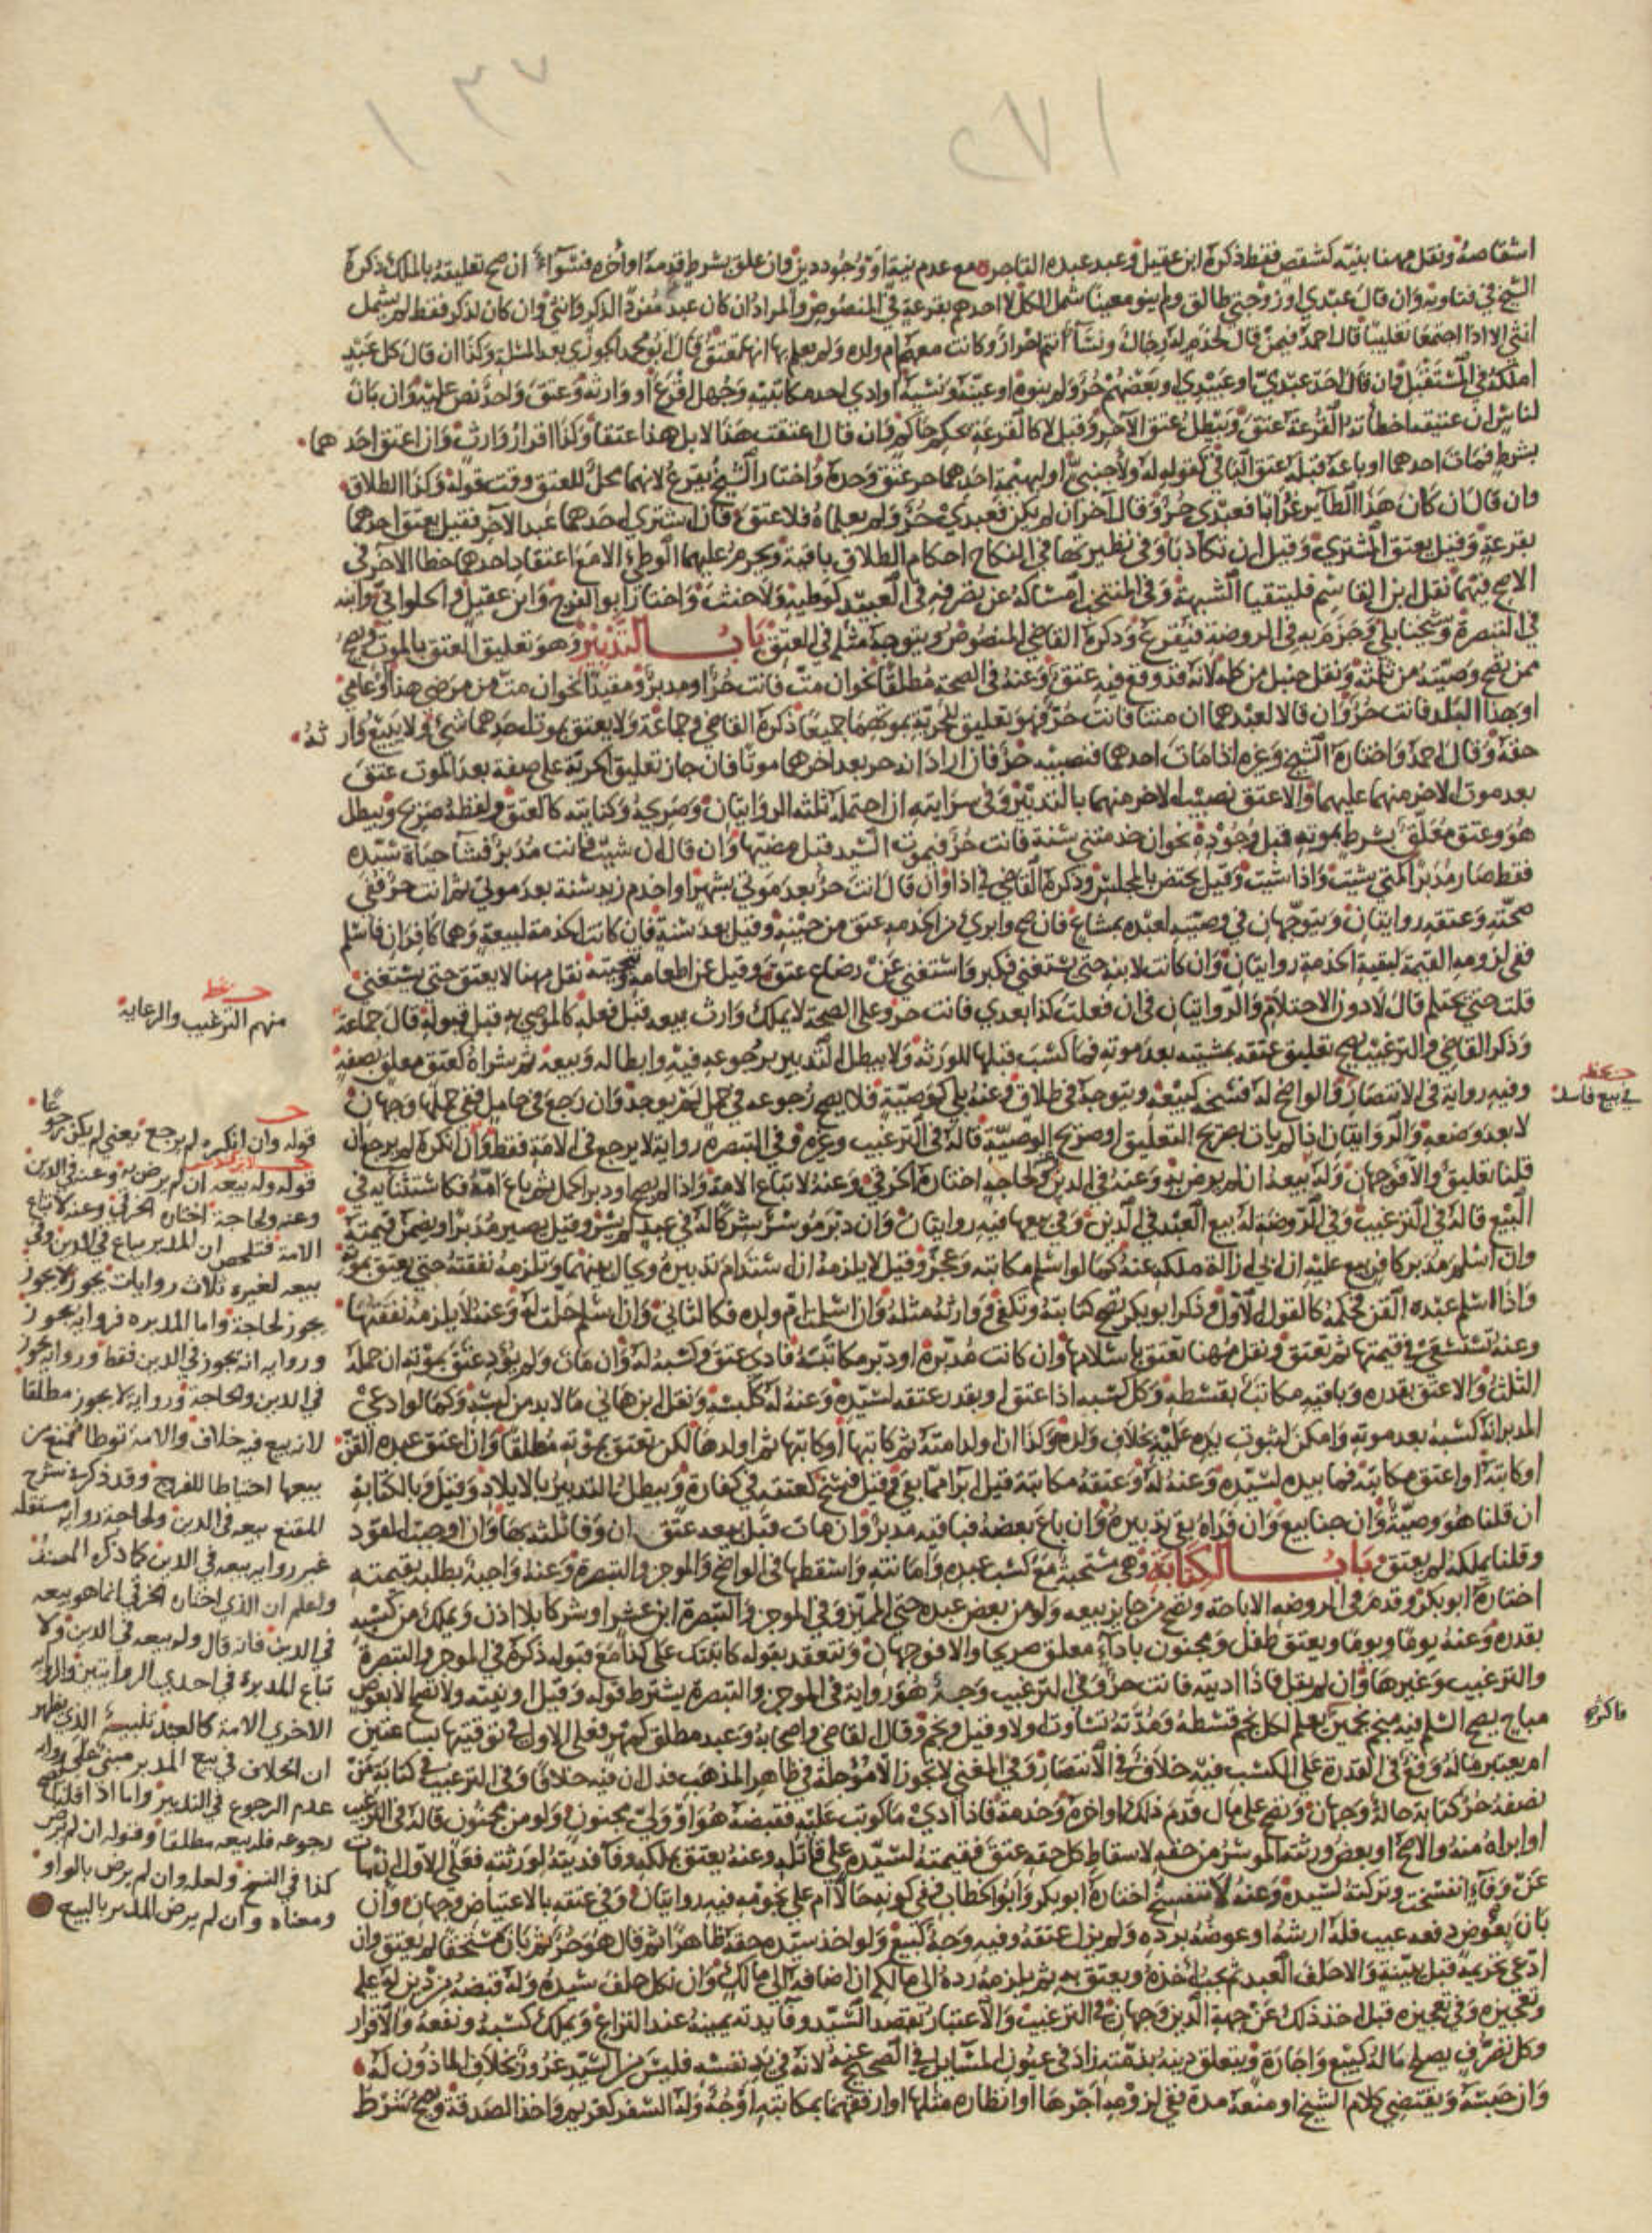 ١٣٧
٢٧١
اشقاصه ونقل مهنا بنيته كشقص فقط ذكره ابن عقيل وعبد عبده القاصر مع عدم نية او وجود دين وان علق بشرط قدمه او أخره فسوآء ان صح تعليقه بالملك ذكره
الشيخ في فتاويه وان قال عبدي او زوجتي طالق ولم ينو معينا شمل الكل لا احدهم بقرعة في المنصوص والمراد ان كان عبد مفرد الذكر وانثى وان كان لذكر فقط لم يشمل
انثى الا اذا اجتمعا تغليبا قال احمد فيمن قال لخدم له رجال ونسآ انتم احرار وكانت معهم ام ولده ولم يعلم بها انها تعتق قال ابو محمد الجوزي بعد المسئلة وكذا ان قال كل عبد
املكه في المستقبل فان قال احد عبديّ او عبيدي او بعضهم حر ولم ينوه او عينه ونسيه او ادي احد مكاتبيه وجهل اقرع او وارثه وعتق واحد نص عليه وان بان
لناس ان عتيقه اخطأته القرعة عتق ويبطل عتق الآخر وقيل لا كالقرعة بحكم حاكم وان قال اعتقت هذا لا بل هذا عتقا وكذا اقرار وارث وان اعتق احدهما
بشرط فمات احدهما او باعه قبله عتق الباقي كقوله له ولاجنبي او لبهيمة احدهما حر عتق وحده واختار الشيخ يقرع لانهما محل للعتق وقت قوله وكذا الطلاق
وان قال ان كان هذا الطآير غرابا فعبدي حر وقال آخر ان لم يكن فعبدي حر ولم يعلماه فلا عتق فان اشترى احدهما عبد الآخر فقيل يعتق احدهما
بقرعة وقيل يعتق المشتري وقيل ان تكاذبا وفي نظيرتها في النكاح احكام الطلاق باقية ويحرم عليهما الوطئ الا مع اعتقاد احدهما خطا الاخر في
الاصح فيهما نقل ابن القاسم فليتقيا الشبهة وفي المنتخب امساكه عن تصرفه في العبيد كوطيه ولا حنث واختار ابو الفرج وابن عقيل والحلواني وابنه
في التبصرة وشيخنا بلى وجزم به في الروضة فيقرع وذكره القاضي المنصوص ويتوجه مثله في العتق باب التدبير وهو تعليق العتق بالموت ويصح
ممن تصح وصيته من ثلثه ونقل حنبل من كله لانه قد وقع فيه عتق وعنه في الصحة مطلقا نحو ان مت فانت حر او مدبر ومقيدا نحو ان مت من مرضي هذا او عامي
او هذا البلد فانت حر وان قالا لعبدهما ان متنا فانت حر فهو تعليق للحرية بموتهما جميعا ذكره القاضي وجماعة ولا يعتق بموت احدهما شئ ولا يبيع وارثه
حقه وقال احمد واختاره الشيخ وغيره اذا مات احدهما فنصيبه حر فان ارادا انه حر بعد اخرهما موتا فان جاز تعليق الحرية على صفة بعد الموت عتق
بعد موت الاخر منهما عليهما والا عتق نصيب الاخر منهما بالتدبير وفي سرايته ان احتمله ثلثه الروايتان وصريحه وكنايته كالعتق ولفظه صريح ويبطل
هو وعتق معلق بشرط بموته قبل وجوده نحو ان خدمتني سنة فانت حر فيموت السيد قبل مضيها وان قال ان شيت فانت مدبر فشآ حياة سيده
فقط صار مدبرا كمتى شيت واذا شيت وقيل يختص بالمجلس وذكره القاضي في اذا وان قال انت حر بعد موتي بشهر او اخدم زيد سنة بعد موتي ثم انت حر ففي
صحته وعتقه روايتان ويتوجهان في وصيته لعبده بمشاع فان صح وابرئ من الخدمة عتق من حينه وقيل بعد سنة فان كانت الخدمة لبيعة وهما كافران فاسلم
ففي لزومه القيمة لبقية الخدمة روايتان وان كانت لابنه حتى يستغني فكبر واستغنى عن رضاع عتق وقيل عن اطعامه وتنجيته نقل مهنا لا يعتق حتى يستغني
قلت حتى يحتلم قال لا دون الاحتلام والروايتان في ان فعلت كذا بعدي فانت حر وعلى الصحة لا يملك وارث بيعه قبل فعله كالموصي به قبل قبوله قال جماعة
وذكر القاضي والترغيب يصح تعليق عتقه بمشيته بعد موته فما كسب قبلها للورثة ولا يبطل التدبير برجوعه فيه وابطاله وبيعه ثم شراه كعتق معلق بصفة
وفيه رواية في الانتصار والواضح له فسخه كبيعه ويتوجه في طلاق وعنه بلى كوصية فلا يصح رجوعه في حمل لم يوجد وان رجع في حامل ففي حملها وجهان
لا بعد وضعه والروايتان اذا لم يات بصريح التعليق او صريح الوصية قاله في الترغيب وغيره وفي التبصرة رواية لا يرجع في الامة فقط وان انكره لم يرجع ان
قلنا تعليق والا فوجهان وله بيعه ان لم يوص به وعنه في الدين ولحاجة اختاره الخرقي وعنه لا تباع الامة واذا لم يصح او دبر الحمل ثم باع امه فكاستثنايه في
البيع قاله في الترغيب وفي الروضة له بيع العبد في الدين وفي بيعها فيه روايتان وان دبر موسر شركا له في عبد لم يسر وقيل يصير مدبرا ويضمن قيمته
وان اسلم مدبر كافر بيع عليه ان ابى ازالة ملكه عنه كما لو اسلم مكاتبه وعجز وقيل لا يلزمه ان استدام تدبيره ويحال بينهما وتلزمه نفقته حتى يعتق بموته
واذا اسلم عبده القن فحكمه كالقول الاول وذكر ابو بكر تصح كتابته وتكفي ووارثه مثله وان اسلمت ام ولده فكالثاني وان اسلم حلت له وعنه لا يلزمه نفقتها
وعنه تستسعى في قيمتها ثم تعتق ونقل مهنا تعتق باسلامها وان كانت مدبرة او دبر مكاتبه فادى عتق وكسبه له وان مات ولم يؤد عتق بموته ان حمله
الثلث والا عتق بقدره وباقيه مكاتب بقسطه وكل كسبه اذا عتق او بقدر عتقه لسيده وعنه له كلبسه ونقل ابن هاني ما لا بد من لبسه وكما لو ادعى
المدبر انه كسبه بعد موته وامكن لثبوت يده عليه بخلاف ولده وكذا ان اولد امته ثم كاتبها او كاتبها ثم اولدها لكن تعتق بموته مطلقا وان اعتق عبده القن
او كاتبه او اعتق مكاتبه فما بيده لسيده وعنه له وعتقه مكاتبه قيل ابرا مما بقي وقيل فسخ كعتقه في كفارة ويبطل التدبير بالايلاد وقيل وبالكتابة
ان قلنا هو وصية وان جنى بيع وان فداه بقي تدبيره وان باع بعضه فباقيه مدبر وان مات قبل بيعه عتق ان وفى ثلثه بها وان اوجبت القود
وقلنا يملكه لم يعتق باب الكتابة وهي مستحبة مع كسب عبده وامانته واسقطها في الواضح والموجز والتبصرة وعنه واجبة بطلبه بقيمته
اختاره ابو بكر وقدم في الروضه الاباحة وتصح من جايز بيعه ولو من بعض عبده حتى المميز وفي الموجز والتبصرة ابن عشر او شركا بلا اذن ويملك من كسبه
بقدره وعنه يوما ويوما ويعتق طفل ومجنون بادآء معلق صريحا والا فوجهان وتنعقد بقوله كاتبتك على كذا مع قبوله ذكره في الموجز والتبصرة
والترغيب وغيرها وان لم يقل فاذا اديته فانت حر وفي الترغيب وجه هو رواية في الموجز والتبصرة يشترط قوله وقيل او نيته ولا تصح الا بعوض
مباح يصح السلم فيه منجم نجمين يعلم لكل نجم قسطه ومدته تساوت او لا وقيل ونجم وقال القاضي واصحابه وعبد مطلق كمهر فعلى الاول في توقيتها بساعتين
ام يعتبر ماله وقع في القدرة على الكسب فيه خلاف في الانتصار وفي المغني لا تجوز الا مؤجلة في ظاهر المذهب فدل ان فيه خلافا وفي الترغيب في كتابة من
نصفه حر كتابة حالة وجهان وتصح على مال قدم ذلك او اخره وخدمة فاذا ادى ما كوتب عليه فقبضه هو او ولي مجنون ولو من مجنون قاله في الترغيب
او ابراه منه والاصح او بعض ورثته الموسر من حقه لاسقاط كل حقه عتق فقيمته لسيده على قاتله وعنه يعتق بملكه وفآ فديته لورثته فعلى الاول ان مات
عن وفآء انفسخت وتركته لسيده وعنه لا تنفسخ اختاره ابو بكر وابو الخطاب ففي كونه حالا ام على نجومه فيه روايتان وفي عتقه بالاعتياض وجهان وان
بان بعوض دفعه عيب فله ارشه او عوضه برده ولم يزل عتقه وفيه وجه كبيع ولو اخذ سيده حقه ظاهرا ثم قال هو حر ثم بان مستحقا لم يعتق وان
ادعى تحريمه قبل ببينة والا حلف العبد ثم يجب اخذه ويعتق به ثم يلزمه رده الى مالكه ان اضافه الى مالك وان نكل حلف سيده وله قبضه من دين له عليه
وتعجيزه وفي تعجيزه قبل اخذ ذلك عن جهة الدين وجهان في الترغيب والاعتبار بقصد السيد وفآيدته يمينه عند النزاع ويملك كسبه ونفعه والاقرار
وكل تصرف يصلح ماله كبيع واجارة ويتعلق دينه بذمته زاد في عيون المسآيل في الصحيح عنه لانه في يد نفسه فليس من السيد غرور بخلاف الماذون له
وان حبسه ويقتضي كلام الشيخ او منعه مدة ففي لزومه اجرها او انظاره مثلها او ارفقهما بمكاتبه اوجه وله السفر كغريم واخذ الصدقة ويصح شرط
منهم الترغيب والرعاية
في بيع فاسد
قوله وان انكره لم يرجع يعني لم يكن رجوعا
قوله وله بيعه ان لم يرض به وعنه في الدين
وعنه ولحاجة اختاره الخرقي وعنه لا تباع
الامة فتلخص ان المدبر يباع في الدين وفي
بيعه لغيره ثلاث روايات يجوز لا يجوز
يجوز لحاجة واما المدبره فروايه يجوز
وروايه انه يجوز في الدين فقط وروايه يجوز
في الدين ولحاجة ورواية لا يجوز مطلقا
لانه بيع فيه خلاف والامة توطا فمنع من
بيعها احتياطا للفرج وقد ذكره شرح
المقنع بيعه في الدين ولحاجة روايه مستقله
غير روايه بيعه في الدين كما ذكره المصنف
ولعلم ان الذي اختاره الخرقي انما هو بيعه
في الدين فانه قال وله بيعه في الدين ولا
تباع المدبرة في احدى الروايتين والروايه
الاخرى الامة كالعبد تنبيه الذي يظهر
ان الخلاف في بيع المدبر مبني على روايه
عدم الرجوع في التدبير واما اذا قلنا يصح
رجوعه فله بيعه مطلقا وقوله ان لم يرض
كذا في النسخ ولعله وان لم يرض بالواو
ومعناه وان لم يرض المدبر بالبيع